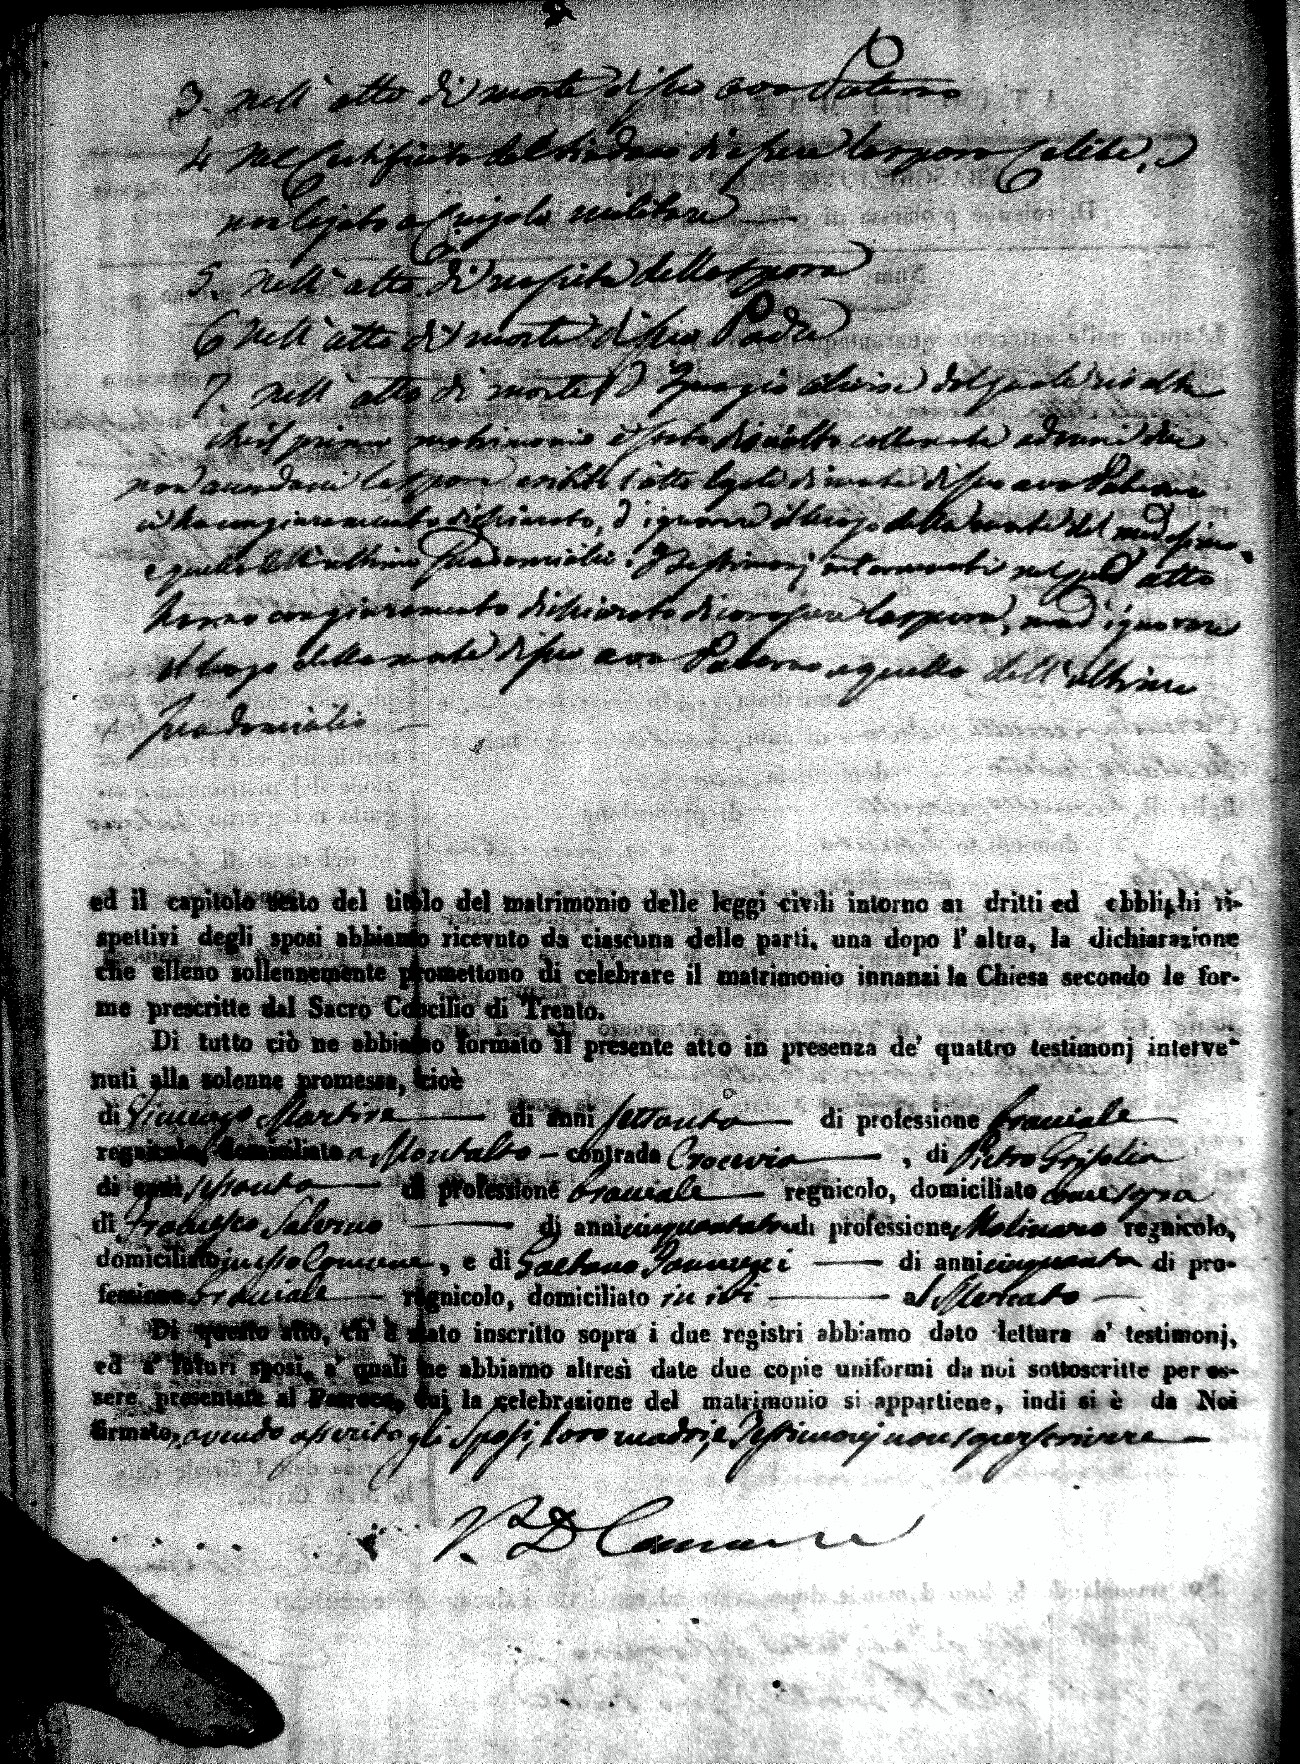 3. nell'atto di morte di suo avo Paterno
4 nel Certificato del Sindaco di essere lo sposo Celibe,
non legato a Cingolo militare —
5. nell'atto di nascita della sposa
6 nell'atto di morte di suo Padre
7. nell'atto di morte d'Ignazio del quale risulta
che il primo matrimonio è stato disciolto
non la sposa esibito l'atto legale di morte di suo avo Paterno
ha con giuramento dichiarato, d'ignorare il luogo della morte del medesimo
e quello dell'ultimo suo domicilio. I Testimonj intervenuti nel atto
hanno con giuramento dichiarato di conoscere la sposa, ma d'ignorare
il luogo della morte di suo avo Paterno e quello dell'ultimo
suo domicilio —
ed il capitolo sesto del titolo del matrimonio delle leggi civili intorno ai dritti ed obblighi ri-
spettivi degli sposi abbiamo ricevuto da ciascuna delle parti, una dopo l'altra, la dichiarazione
che elleno sollennemente promettono di celebrare il matrimonio innanzi la Chiesa secondo le for-
me prescritte dal Sacro Concilio di Trento.
Di tutto ciò ne abbiamo formato il presente atto in presenza de' quattro testimonj interve-
nuti alla solenne promessa, cioè
di Martire — di anni settanta — di professione braciale —
regnicolo, domiciliato a Montalto — contrada Crocevia —, di Pietro Grisolia
di anni sessanta — di professione braciale — regnicolo, domiciliato come sopra
di Francesco Salerno — di anni cinquantatre di professione Molinaro regnicolo,
domiciliato in esso Comune, e di Gaetano Iannuzzi — di anni cinquanta di pro-
fessione braciale — regnicolo, domiciliato in ivi — al Mercato —
Di questo atto, ch'è stato inscritto sopra i due registri abbiamo dato lettura a' testimonj,
ed a' futuri sposi, a' quali ne abbiamo altresì date due copie uniformi da noi sottoscritte per es-
sere presentate al Parroco, cui la celebrazione del matrimonio si appartiene, indi si è da Noi
firmato, avendo asserito gli Sposi, loro madri, e Testimonj non saper scrivere —